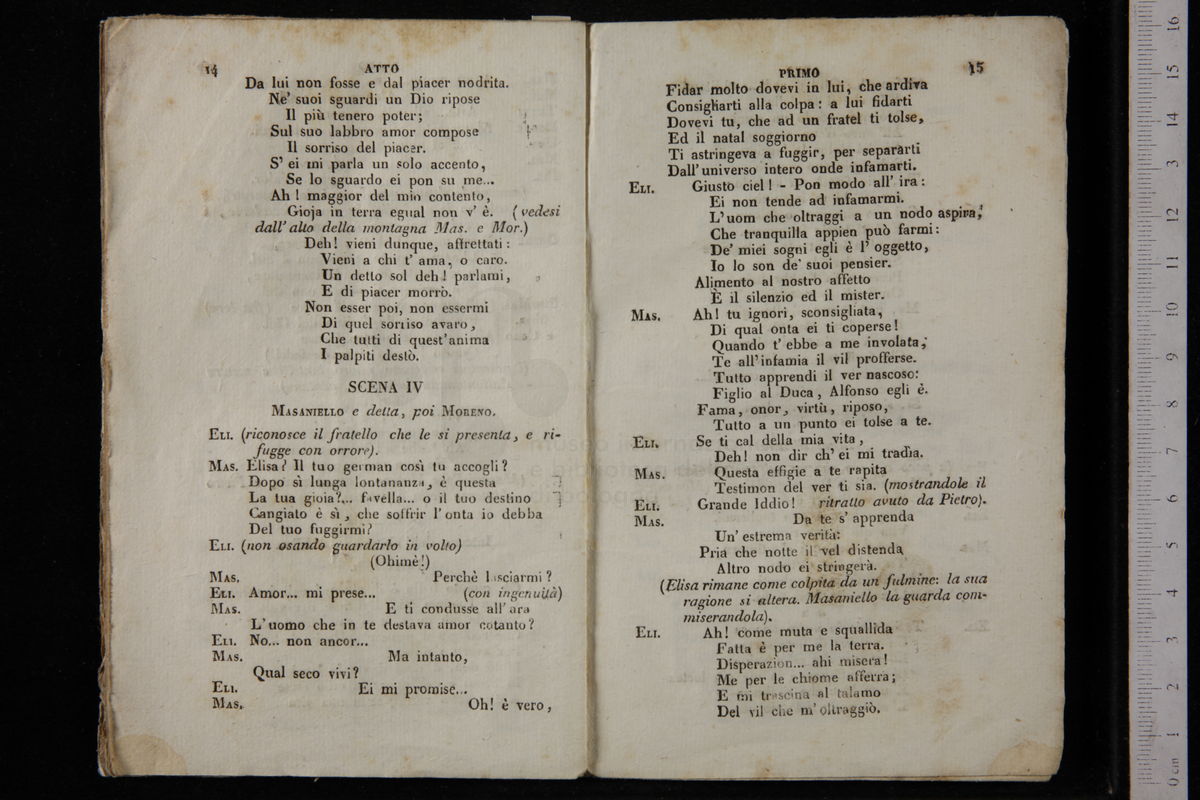 14
ATTO
Da lui non fosse e dal piacer nodrita.
Ne' suoi sguardi un Dio ripose
Il più tenero poter;
Sul suo labbro amor compose
Il sorriso del piacer.
S' ei mi parla un solo accento,
Se lo sguardo ei pon su me...
Ah! maggior del mio contento,
Gioja in terra egual non v' è. (vedesi
dall' alto della montagna Mas. e Mor.)
Deh! vieni dunque, affrettati:
Vieni a chi t' ama, o caro.
Un detto sol deh! parlami,
E di piacer morrò.
Non esser poi, non essermi
Di quel sorriso avaro,
Che tutti di quest'anima
I palpiti destò.
SCENA IV
MASANIELLO e detta, poi MORENO.
ELI. (riconosce il fratello che le si presenta, e ri-
fugge con orrore).
MAS. Elisa? Il tuo german così tu accogli?
Dopo sì lunga lontananza, è questa
La tua gioia?... favella... o il tuo destino
Cangiato è sì, che soffrir l' onta io debba
Del tuo fuggirmi?
ELI. (non osando guardarlo in volto)
(Ohimè!)
MAS. Perchè lasciarmi?
ELI. Amor... mi prese... (con ingenuità)
MAS. E ti condusse all' ara
L' uomo che in te destava amor cotanto?
ELI. No... non ancor...
MAS. Ma intanto,
Qual seco vivi?
ELI. Ei mi promise...
MAS. Oh! è vero,
PRIMO
15
Fidar molto dovevi in lui, che ardiva
Consigliarti alla colpa: a lui fidarti
Dovevi tu, che ad un fratel ti tolse,
Ed il natal soggiorno
Ti astringeva a fuggir, per separarti
Dall' universo intero onde infamarti.
ELI. Giusto ciel! - Pon modo all' ira:
Ei non tende ad infamarmi.
L' uom che oltraggi a un nodo aspira,
Che tranquilla appien può farmi:
De' miei sogni egli è l' oggetto,
Io lo son de' suoi pensier.
Alimento al nostro affetto
È il silenzio ed il mister.
MAS. Ah! tu ignori, sconsigliata,
Di qual onta ei ti coperse!
Quando t' ebbe a me involata,
Te all' infamia il vil profferse.
Tutto apprendi il ver nascoso:
Figlio al Duca, Alfonso egli è.
Fama, onor, virtù, riposo,
Tutto a un punto ei tolse a te.
ELI. Se ti cal della mia vita,
Deh! non dir ch' ei mi tradìa.
MAS. Questa effigie a te rapita
Testimon del ver ti sia. (mostrandole il
ELI. Grande Iddio! ritratto avuto da Pietro).
MAS. Da te s' apprenda
Un' estrema verità:
Pria che notte il vel distenda
Altro nodo ei stringerà.
(Elisa rimane come colpita da un fulmine: la sua
ragione si altera. Masaniello la guarda com-
miserandola).
ELI. Ah! come muta e squallida
Fatta è per me la terra.
Disperazion... ahi misera!
Me per le chiome afferra;
E mi trascina al talamo
Del vil che m' oltraggiò.